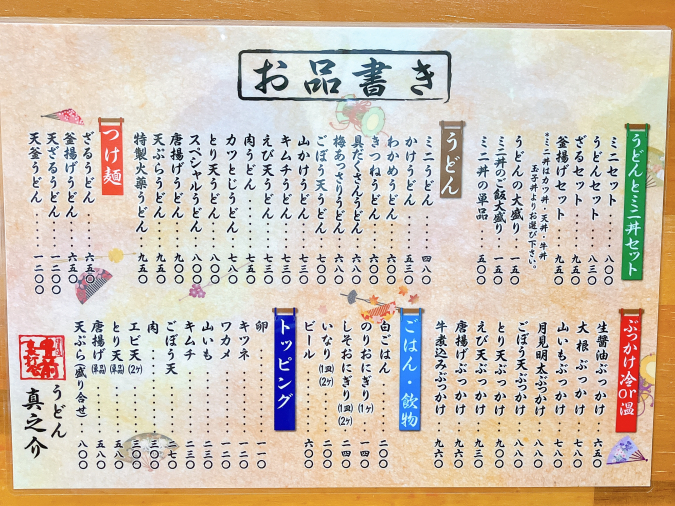 お品書き
うどんとミニ丼セット
ミニセット
うどんセット 八三〇
ざるセット 九五〇
釜揚げセット 九五〇
*ミニ丼はカツ丼・天丼・牛丼
玉子丼よりお選び下さい。
うどんの大盛り 一五〇
ミニ丼のご飯大盛り 一五〇
ミニ丼の単品 五〇〇
うどん
ミニうどん 四八〇
かけうどん 五三〇
わかめうどん 六〇〇
きつねうどん 六〇〇
具だくさんうどん 七八〇
梅あっさりうどん 六八〇
ごぼう天うどん 七〇〇
山かけうどん 七三〇
キムチうどん 七三〇
えび天うどん 七三〇
肉うどん 七五〇
カツとじうどん 七八〇
とり天うどん 八〇〇
スペシャルうどん 九〇〇
唐揚げうどん 九〇〇
天ぷらうどん 九五〇
特製火薬うどん 九五〇
つけ麺
ざるうどん 六五〇
釜揚げうどん 六五〇
天ざるうどん 一二〇〇
天釜うどん 一二〇〇
ぶっかけ冷or温
生醤油ぶっかけ 六五〇
大根ぶっかけ 七八〇
山いもぶっかけ 七八〇
月見明太ぶっかけ 八八〇
ごぼう天ぶっかけ 八八〇
とり天ぶっかけ 九三〇
えび天ぶっかけ 九三〇
唐揚げぶっかけ 九六〇
牛煮込みぶっかけ 九六〇
ごはん・飲物
白ごはん 二〇〇
のりおにぎり(1ヶ) 一四〇
しそおにぎり(1皿)(2ヶ) 二四〇
いなり(1皿)(2ヶ) 二〇〇
ビール 六〇〇
トッピング
卵 一一〇
キツネ 一一〇
ワカメ 一二〇
山いも 二三〇
キムチ 二三〇
ごぼう天 二七〇
肉 三〇〇
エビ天(2ヶ) 三〇〇
とり天(単品) 五八〇
唐揚げ(単品) 五八〇
天ぷら(盛り合せ) 八〇〇
うどん
真之介